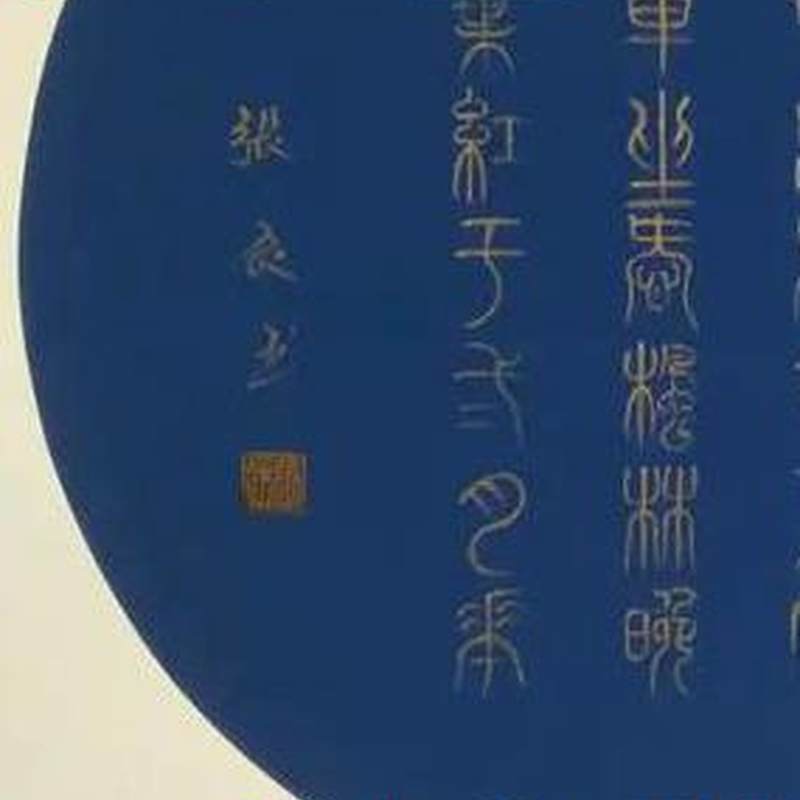 車坐愛楓林晚
葉紅于二月花
張良書